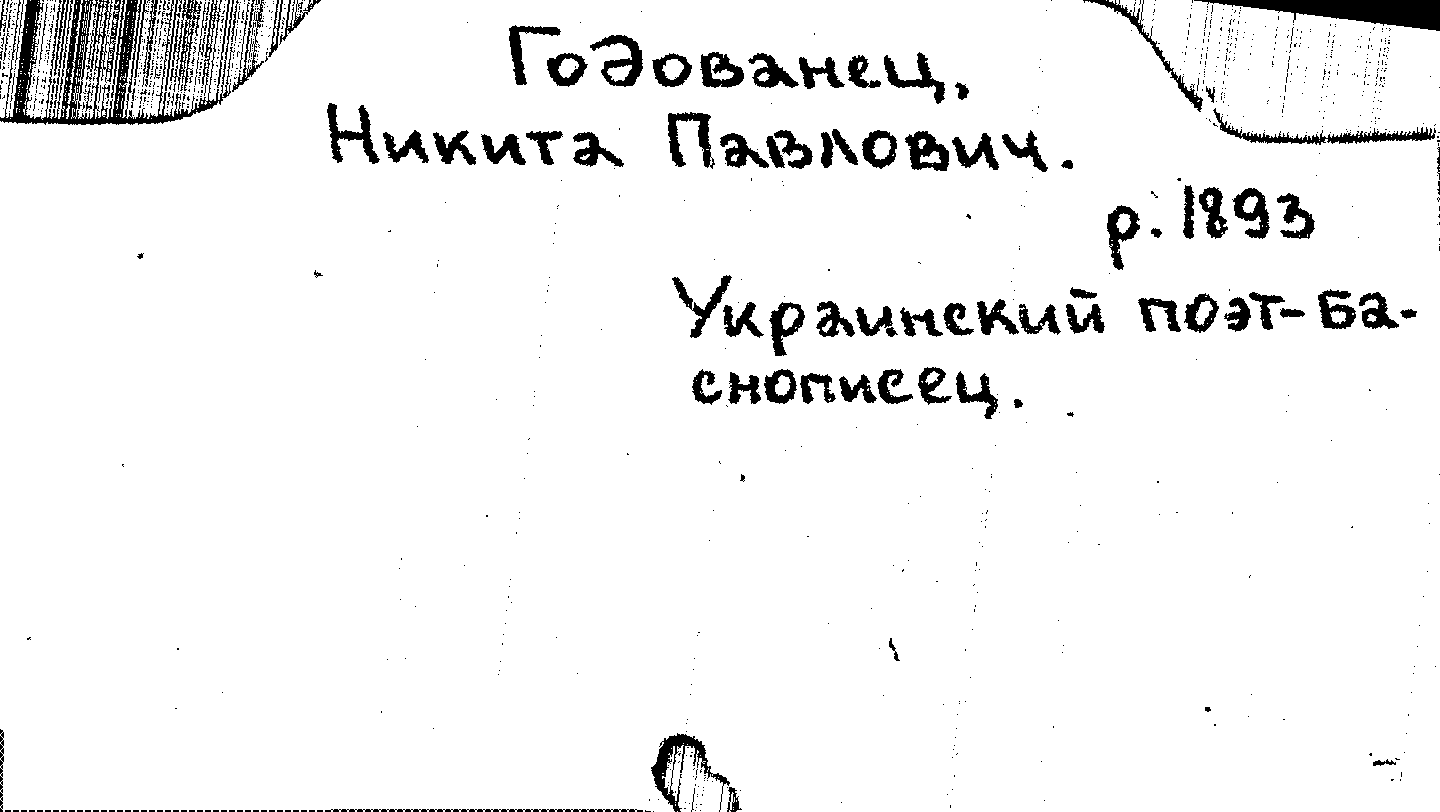 Годованец,
Никита Павлович.
р. 1893
Украинский поэт-ба-
снописец.